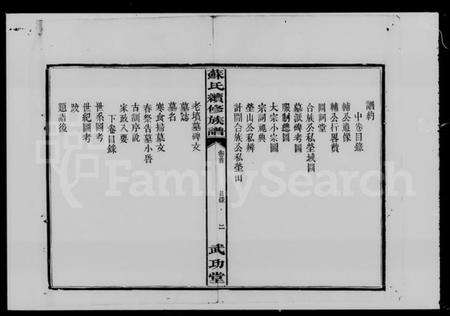 譜約
中卷目錄
輔公遺像
輔公行畧贊
圓阿堂
合族公私塋域圖
墓派碑考圖
服制總圖
大宗小宗圖
宗祠祀典
塋山公私辨
計開合族公私塋山
蘇氏續修族譜
卷首
目錄
二
武功堂
老墳墓碑文
墓誌
墓名
寒食掃墓文
春祭告墓小啓
古訓序說
家政入要
下卷目錄
世系圖考
世紀圖考
跋
題譜後
FamilySearch